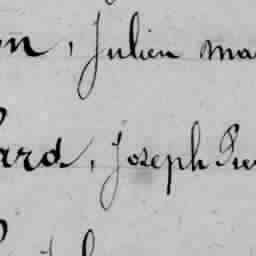 on, Julien ma
ard, Joseph Pie